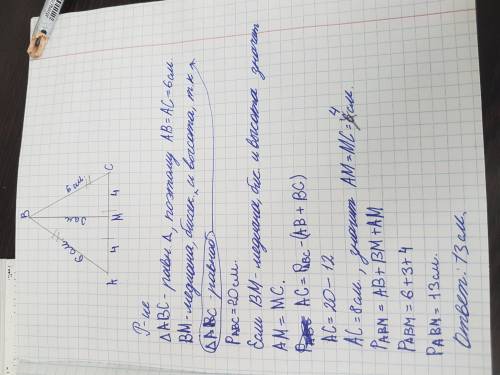 B
6 см
3см
6 см
4
4
A
M
C
Р-ие
ΔABC - равн Δ, поэтому AB = AC = 6 см
BM - медиана, биссек. и высота, т.к
ΔABC равноб
PABC = 20 см.
Если BM - медиана, бис. и высота значит
AM = MC.
AC = PABC - (AB + BC)
AC = 20 - 12
AC = 8 см, значит AM = MC = 4 см.
PABM = AB + BM + AM
PABM = 6 + 3 + 4
PABM = 13 см.
Ответ: 13 см.